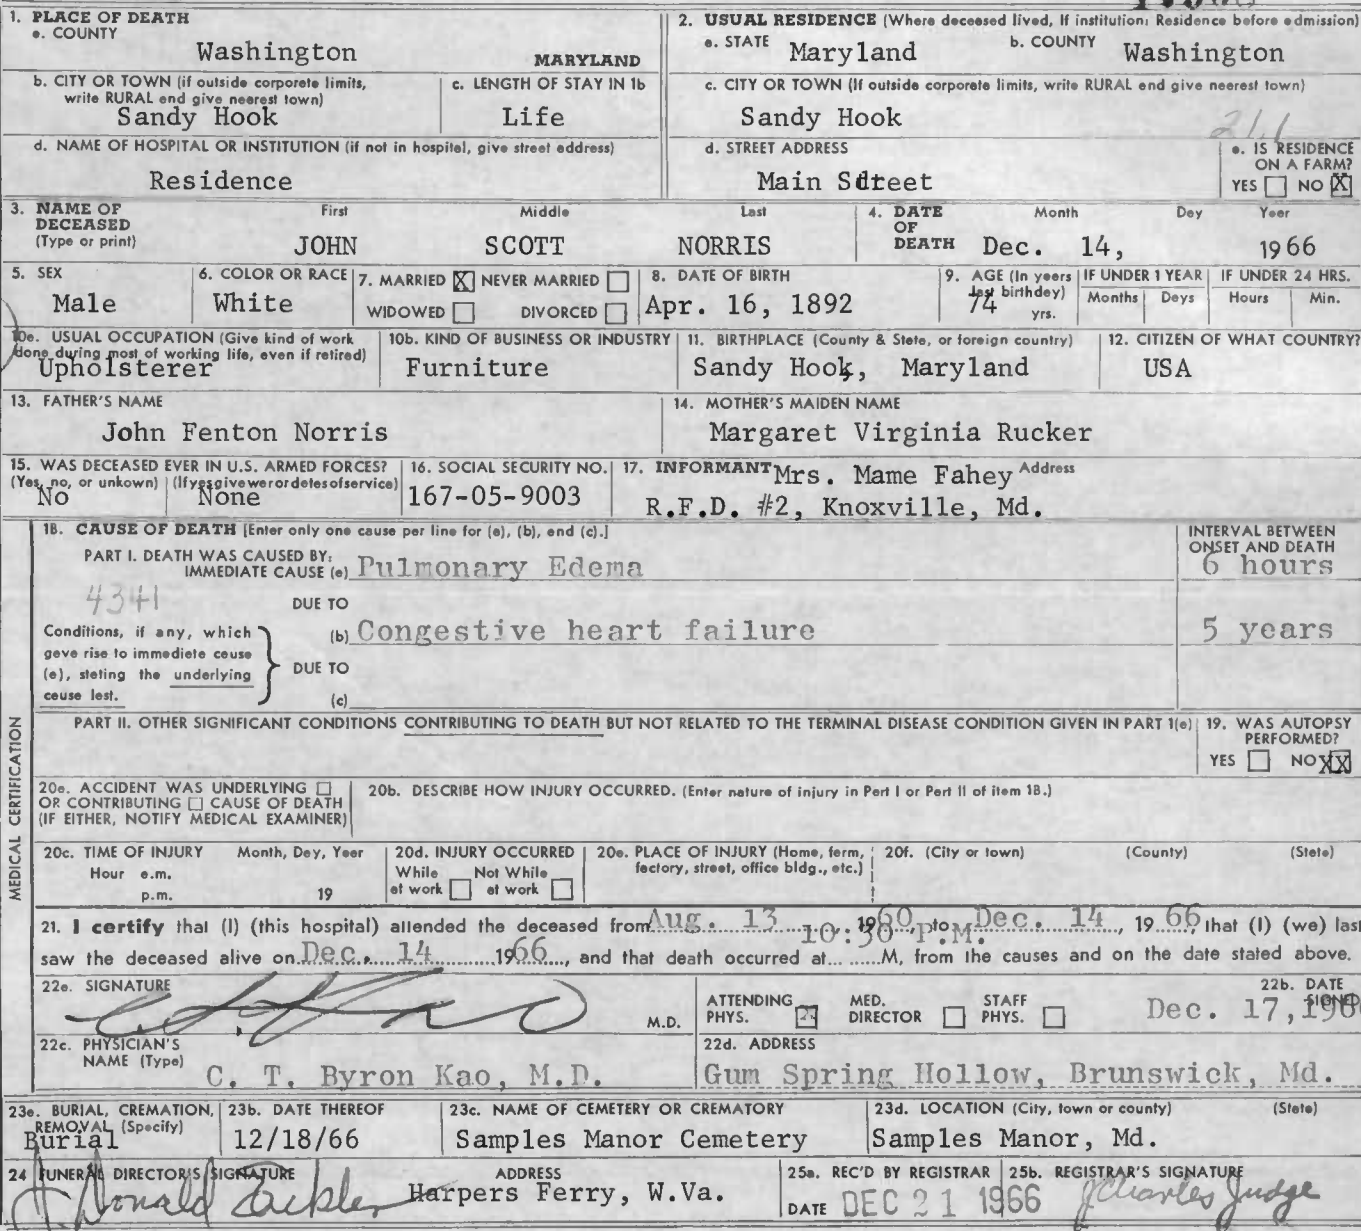 1. PLACE OF DEATH
a. COUNTY
Washington MARYLAND
2. USUAL RESIDENCE (Where deceased lived, If institution: Residence before admission)
a. STATE Maryland b. COUNTY Washington
b. CITY OR TOWN (if outside corporate limits, write RURAL and give nearest town)
Sandy Hook
c. LENGTH OF STAY IN 1b
Life
c. CITY OR TOWN (If outside corporate limits, write RURAL and give nearest town)
Sandy Hook
211
d. NAME OF HOSPITAL OR INSTITUTION (if not in hospital, give street address)
Residence
d. STREET ADDRESS
Main Sdtreet
e. IS RESIDENCE ON A FARM?
YES NO X
3. NAME OF DECEASED (Type or print)
First Middle Last
JOHN SCOTT NORRIS
4. DATE OF DEATH
Month Day Year
Dec. 14, 1966
5. SEX
Male
6. COLOR OR RACE
White
7. MARRIED X NEVER MARRIED
WIDOWED DIVORCED
8. DATE OF BIRTH
Apr. 16, 1892
9. AGE (In years last birthday)
74 yrs.
IF UNDER 1 YEAR
Months Days
IF UNDER 24 HRS.
Hours Min.
10a. USUAL OCCUPATION (Give kind of work done during most of working life, even if retired)
Upholsterer
10b. KIND OF BUSINESS OR INDUSTRY
Furniture
11. BIRTHPLACE (County & State, or foreign country)
Sandy Hook, Maryland
12. CITIZEN OF WHAT COUNTRY?
USA
13. FATHER'S NAME
John Fenton Norris
14. MOTHER'S MAIDEN NAME
Margaret Virginia Rucker
15. WAS DECEASED EVER IN U.S. ARMED FORCES?
(Yes, no, or unkown) (If yes give war or dates of service)
No None
16. SOCIAL SECURITY NO.
167-05-9003
17. INFORMANT Mrs. Mame Fahey Address
R.F.D. #2, Knoxville, Md.
MEDICAL CERTIFICATION
18. CAUSE OF DEATH [Enter only one cause per line for (a), (b), and (c).]
INTERVAL BETWEEN ONSET AND DEATH
PART I. DEATH WAS CAUSED BY:
IMMEDIATE CAUSE (a) Pulmonary Edema 6 hours
4341
DUE TO
Conditions, if any, which gave rise to immediate cause (a), stating the underlying cause last.
(b) Congestive heart failure 5 years
DUE TO
(c)
PART II. OTHER SIGNIFICANT CONDITIONS CONTRIBUTING TO DEATH BUT NOT RELATED TO THE TERMINAL DISEASE CONDITION GIVEN IN PART 1(a)
19. WAS AUTOPSY PERFORMED?
YES NO XX
20a. ACCIDENT WAS UNDERLYING
OR CONTRIBUTING CAUSE OF DEATH
(IF EITHER, NOTIFY MEDICAL EXAMINER)
20b. DESCRIBE HOW INJURY OCCURRED. (Enter nature of injury in Part I or Part II of item 18.)
20c. TIME OF INJURY Month, Day, Year
Hour a.m.
p.m. 19
20d. INJURY OCCURRED
While at work Not While at work
20e. PLACE OF INJURY (Home, farm, factory, street, office bldg., etc.)
20f. (City or town) (County) (State)
21. I certify that (I) (this hospital) attended the deceased from Aug. 13, 1960, to Dec. 14, 1966, that (I) (we) last
10:30 P.M.
saw the deceased alive on Dec. 14 1966, and that death occurred at ......M, from the causes and on the date stated above.
22a. SIGNATURE
M.D.
ATTENDING PHYS. MED. DIRECTOR STAFF PHYS.
22b. DATE SIGNED
Dec. 17, 196
22c. PHYSICIAN'S NAME (Type)
C. T. Byron Kao, M.D.
22d. ADDRESS
Gum Spring Hollow, Brunswick, Md.
23a. BURIAL, CREMATION, REMOVAL (Specify)
Burial
23b. DATE THEREOF
12/18/66
23c. NAME OF CEMETERY OR CREMATORY
Samples Manor Cemetery
23d. LOCATION (City, town or county) (State)
Samples Manor, Md.
24 FUNERAL DIRECTOR'S SIGNATURE
Donald Eackles
ADDRESS
Harpers Ferry, W.Va.
25a. REC'D BY REGISTRAR
DATE DEC 21 1966
25b. REGISTRAR'S SIGNATURE
J Charles Judge